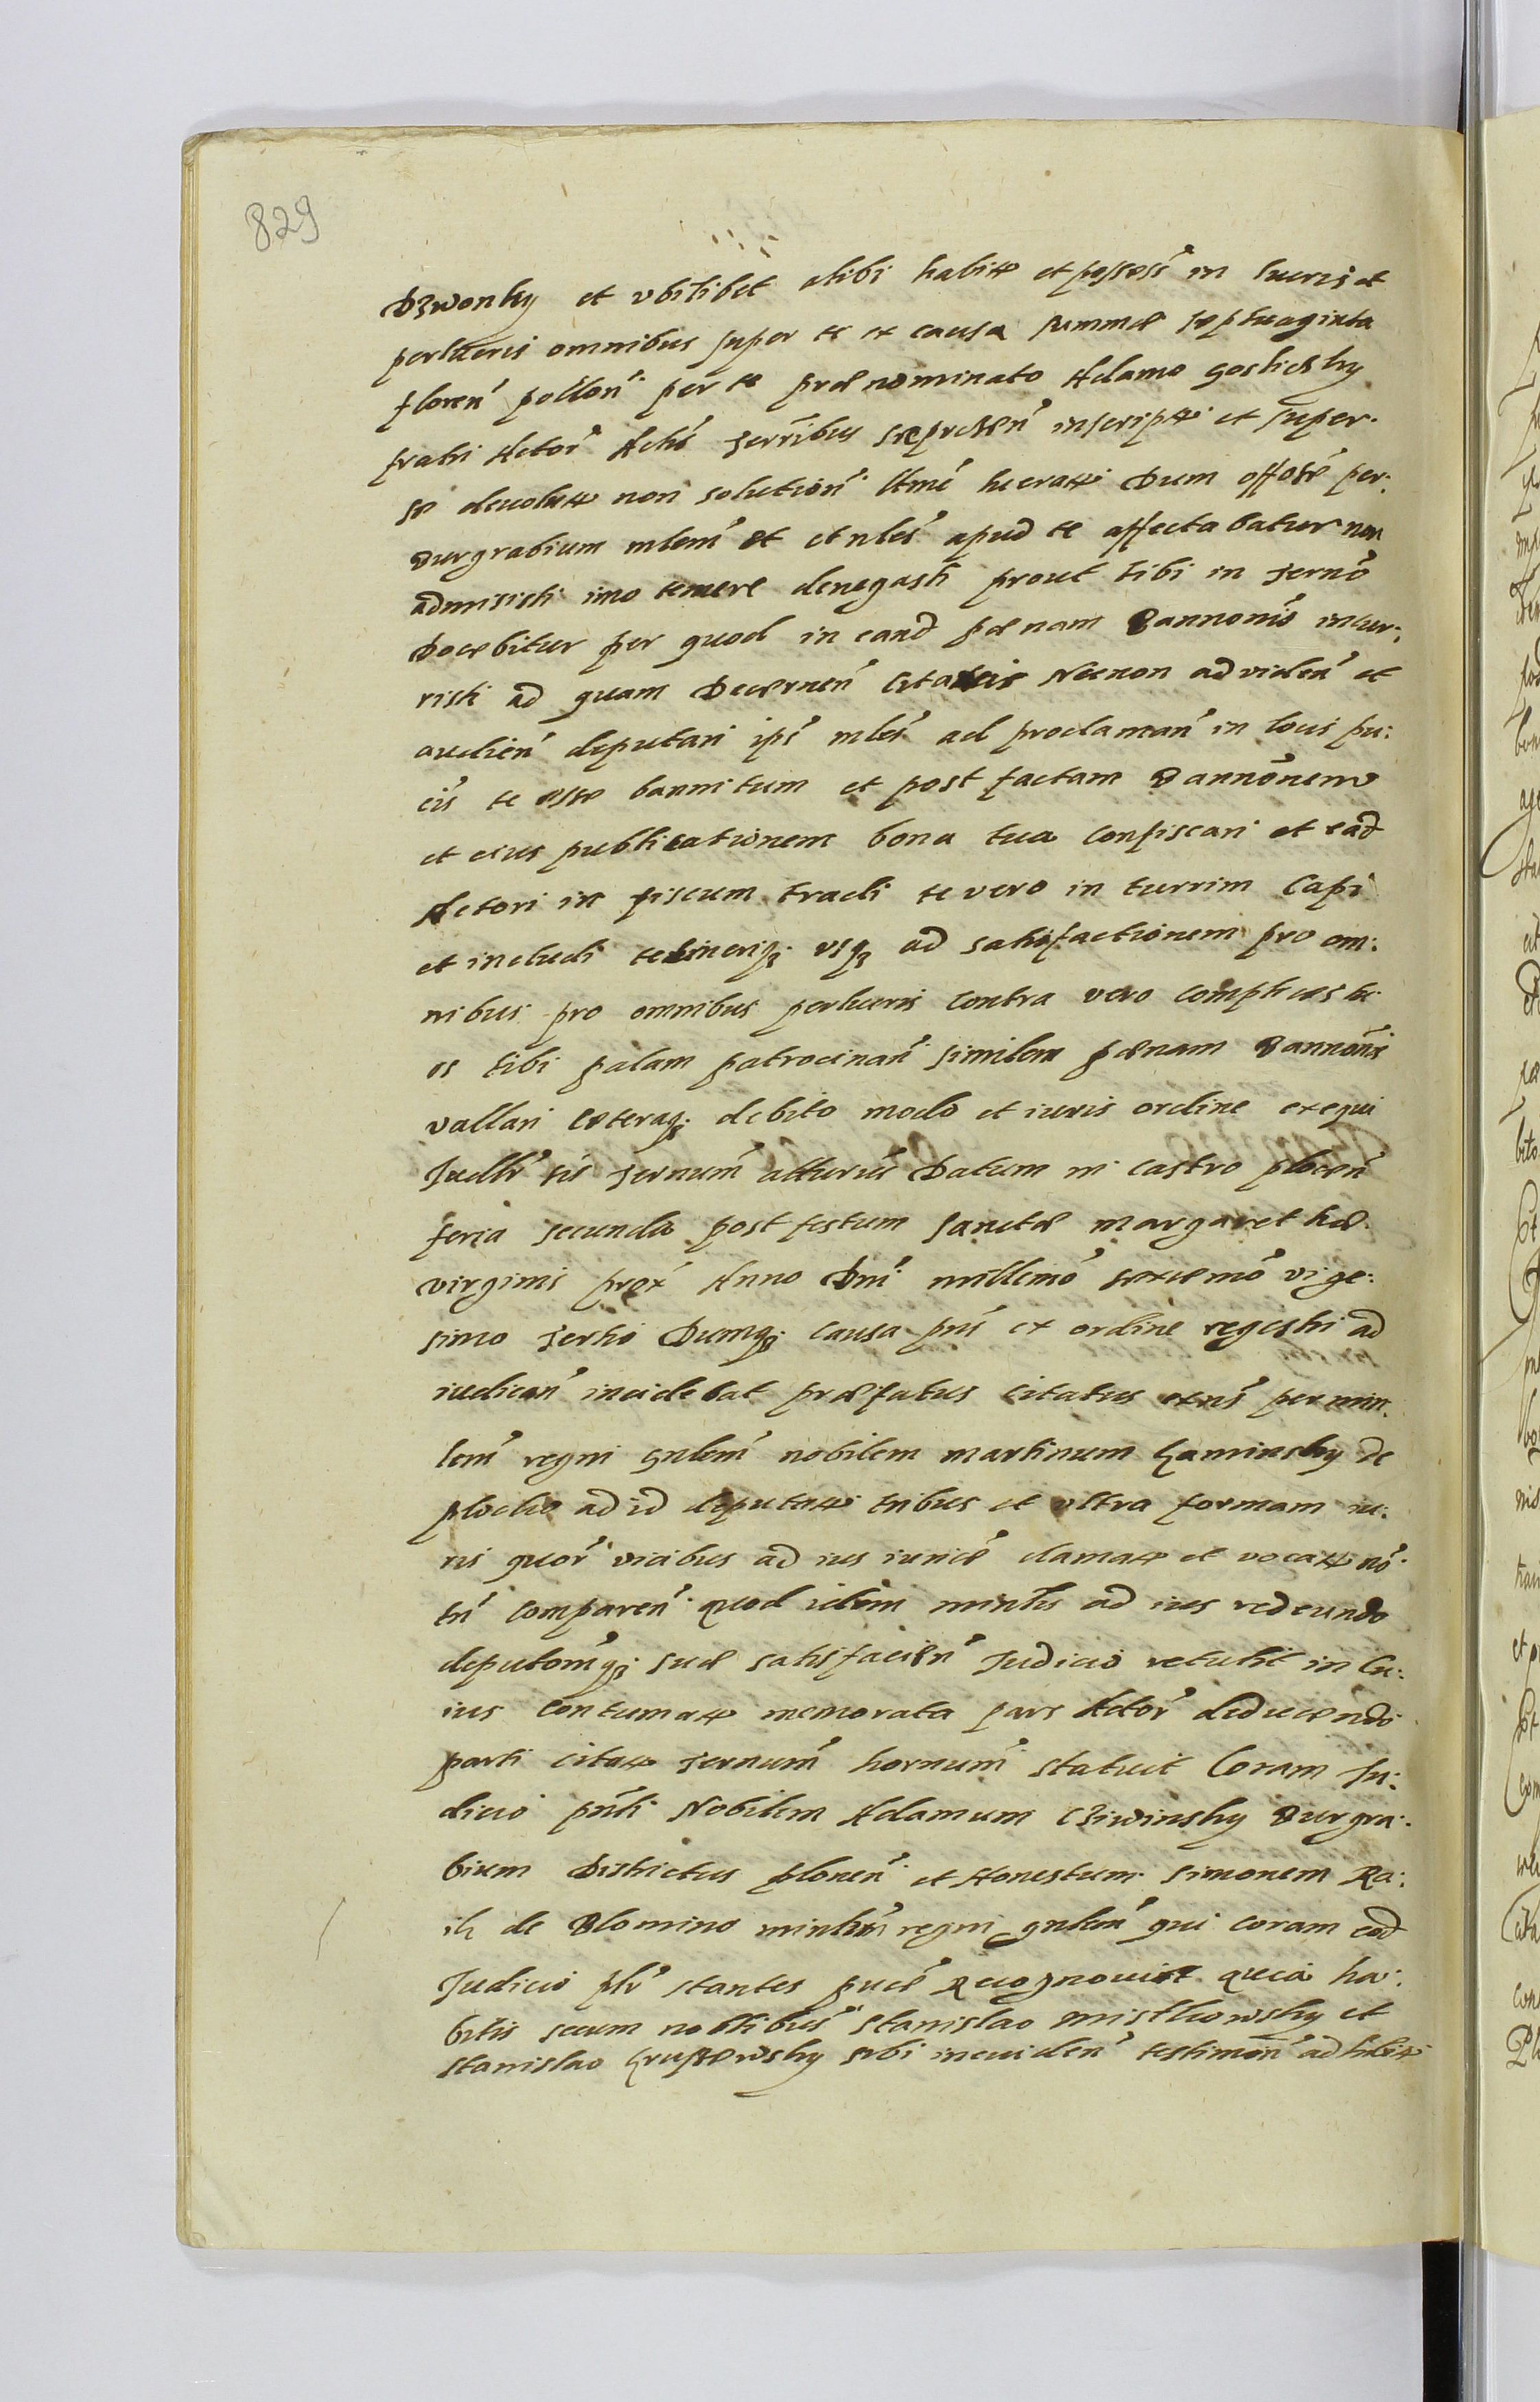 829
Dzwonky et ubilibet alibi habit et possess in lucris et
perlucris omnibus super te ex causa summæ septuaginta
floren pollon per te prænominato Adamo Goslicky
fratri Actor Actis Terribus inscript et super
se devolut non solution ltme lucrat Dum offosæ per:
Burgrabium mlem et et nles apud te affectabatur non
admisisti imo temere denegasti prout tibi in Terno
Docebitur per quod in eand pœnam Bannonis incur:
risti ad quam Decernen Citaris Necnon ad viden et
audien deputari ips mles ad proclaman in locis pu:
cis te esse bannitum et post factam Bannonem
et eius publicationem bona tua Confiscari et ead
Actori in fiscum tradi te vero in turrim Capi
et includi detineriq; usq; ad satisfactionem pro om:
nibus pro omnibus perlucris Contra vero Complices tu
os tibi palam patrocinan similem pœnam Bannonis
vallari Cæteraq; debito modo et iuris ordine exequi
Judlr tis Ternum atturus Datum in Castro plocen
feria secunda post festum Sanctæ Margarethæ
virginis prox Anno Dni millimo sexcemo vige:
simo Tertio Dumq; Causa pns ex ordine regestri ad
iudican incidebat præfatus Citatus exns per min
lem regni gnlem nobilem Martinum Kaminsky de
plocko ad id deputat tribus et ultra formam iu:
ris quor vicibus ad ius iurice clamat et vocat no
tn Comparen quod idem minlis ad ius redeundo
deputoniq; suæ satisfacien Judicio retulit in Cu:
ius Contumat memorata pars Actor deducendo
parti citat Ternum hornum statuit Coram Ju:
dicio pnti Nobilem Adamum Cziwinsky Burgra:
bium Districtus plonen et Honestum Simonem Ra:
ik de Blomino regni gnlem qui coram eod
Judicio plr stantes puce Recognovit quia ha:
bitis secum noblibus Stanislao Mistkowsky et
Stanislao Kruszewsky sibi in eviden testimon adhibit